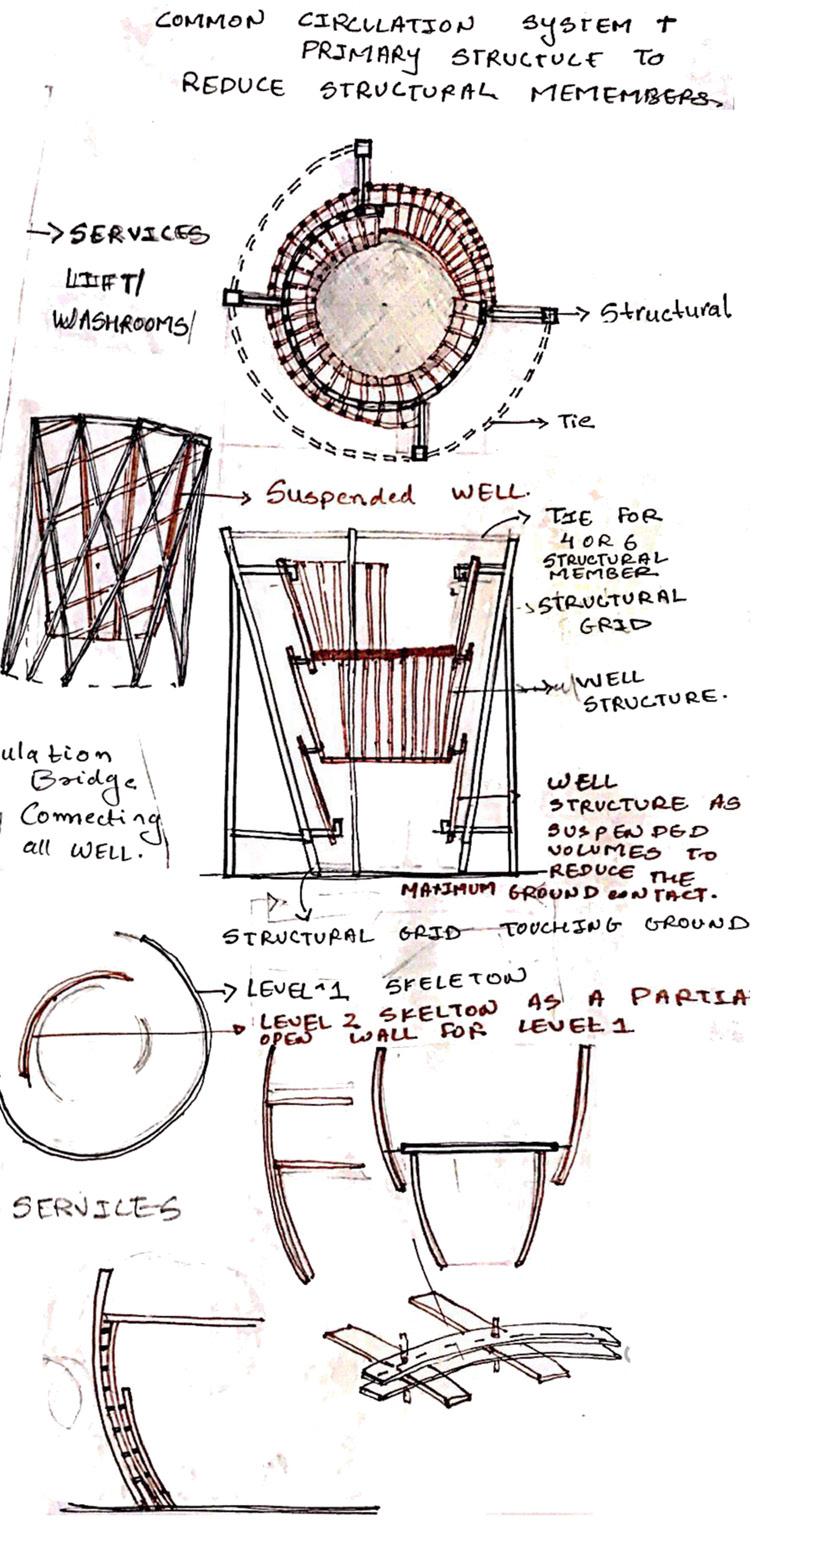 COMMON CIRCULATION SYSTEM +
PRIMARY STRUCTUCE TO
REDUCE STRUCTURAL MEMEMBERS.
SERVICES
LIFT/
WASHROOMS/
Structural
Tie
Suspended WELL.
TIE FOR
4 OR 6
STRUCTURAL
MEMBER
STRUCTURAL
GRID
WELL
STRUCTURE.
ulation
Bridge
Connecting
all WELL.
WELL
STRUCTURE AS
SUSPENDED
VOLUMES TO
REDUCE THE
MAXIMUM GROUND CONTACT.
STRUCTURAL GRID TOUCHING GROUND
LEVEL-1 SKELETON
LEVEL 2 SKELTON AS A PARTIA
OPEN WALL FOR LEVEL 1
SERVICES